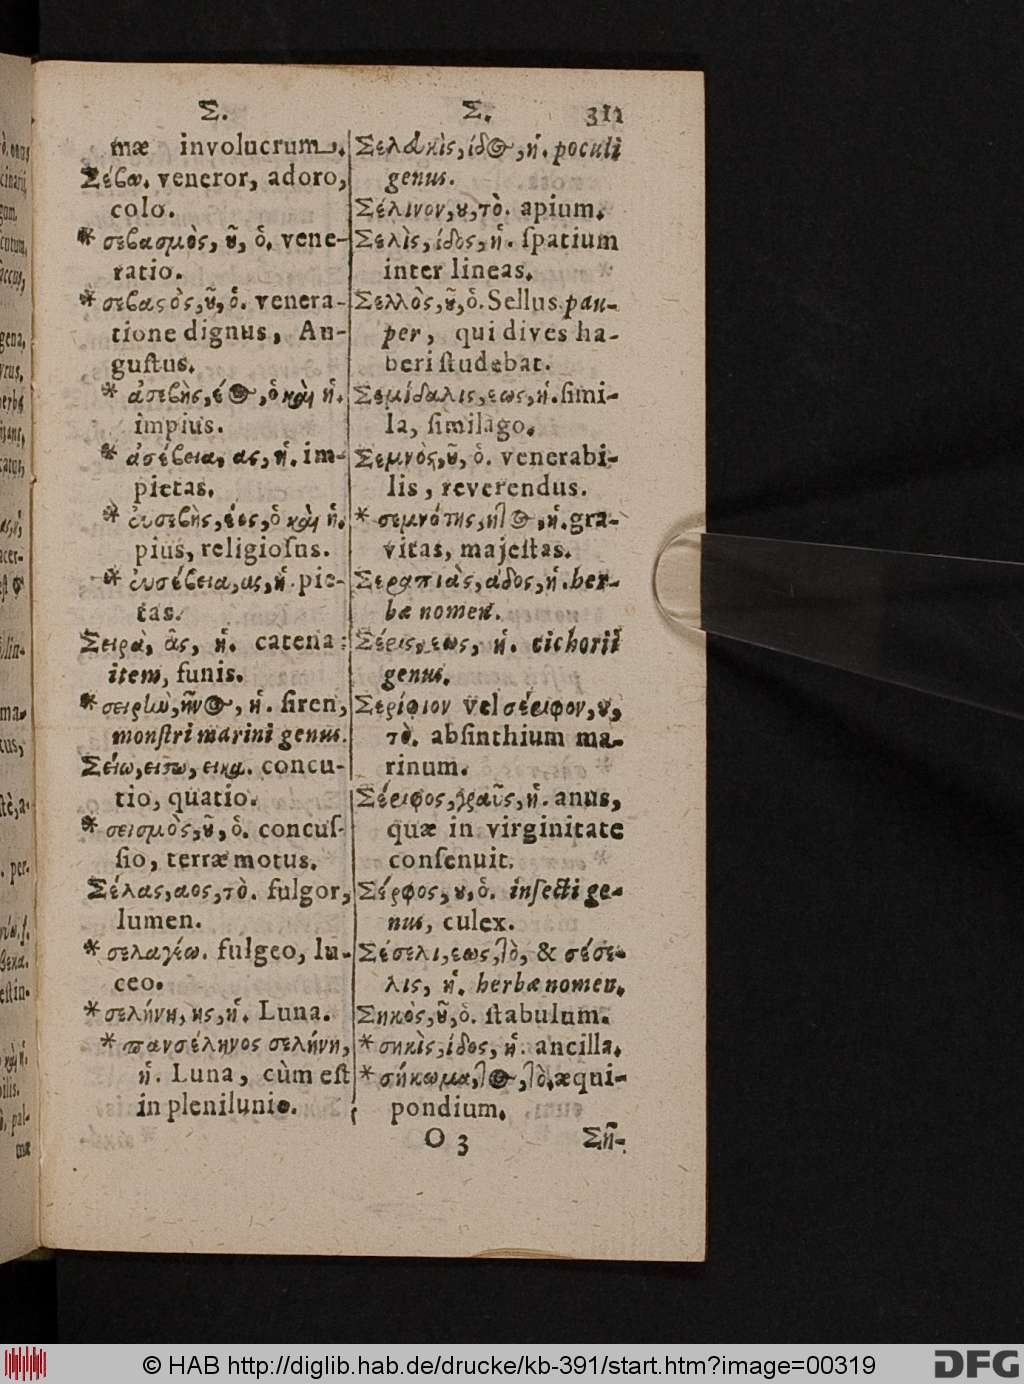 Σ.
mæ involucrum.
Σέβω. veneror, adoro,
colo.
* σεβασμὸς, ȣ͂, ὁ. vene-
ratio.
* σεβαςὸς, ȣ͂, ὁ. venera-
tione dignus, Au-
guſtus.
* ἀσεβὴς, έος, ὁ καὶ ἡ.
impius.
* ἀσέβεια, ας, ἡ. im-
pietas.
* ἐυσεβὴς, έος, ὁ καὶ ἡ.
pius, religioſus.
* ἐυσέβεια, ας, ἡ. pie-
tas.
Σειρὰ, ᾶς, ἡ. catena:
item, funis.
* σειρὴν, ῆνος, ἡ. ſiren,
monſtri marini genus.
Σείω, εισω, εικα. concu-
tio, quatio.
* σεισμὸς, ȣ͂, ὁ. concuſ-
ſio, terræ motus.
Σέλας, αος, τὸ. fulgor,
lumen.
* σελαγέω. fulgeo, lu-
ceo.
* σελήνη, ης, ἡ. Luna.
* πανσέληνος σελήνη,
ἡ. Luna, cùm eſt
in plenilunio.
Σ. 311
Σελακὶς, ίδος, ἡ. poculi
genus.
Σέλινον, ȣ, τὸ. apium.
Σελὶς, ίδος, ἡ. ſpatium
inter lineas.
Σελλὸς, ȣ͂, ὁ. Sellus pau-
per, qui dives ha-
beri ſtudebat.
Σεμίδαλις, εως, ἡ. ſimi-
la, ſimilago.
Σεμνὸς, ȣ͂, ὁ. venerabi-
lis, reverendus.
* σεμνότης, ητος, ἡ. gra-
vitas, majeſtas.
Σεραπιὰς, άδος, ἡ. her-
bæ nomen.
Σέρις, εως, ἡ. cichorii
genus.
Σερίφιον vel σέριφον, ȣ,
τὸ. abſinthium ma-
rinum.
Σέριφος, γραῦς, ἡ. anus,
quæ in virginitate
conſenuit.
Σέρφος, ȣ, ὁ. inſecti ge-
nus, culex.
Σέσελι, εως, τὸ, & σέσε-
λις, ἡ. herbæ nomen.
Σηκὸς, ȣ͂, ὁ. ſtabulum.
* σηκὶς, ίδος, ἡ. ancilla.
* σήκωμα, τος, τὸ. æqui-
pondium.
O 3 Ση-
© HAB http://diglib.hab.de/drucke/kb-391/start.htm?image=00319
DFG